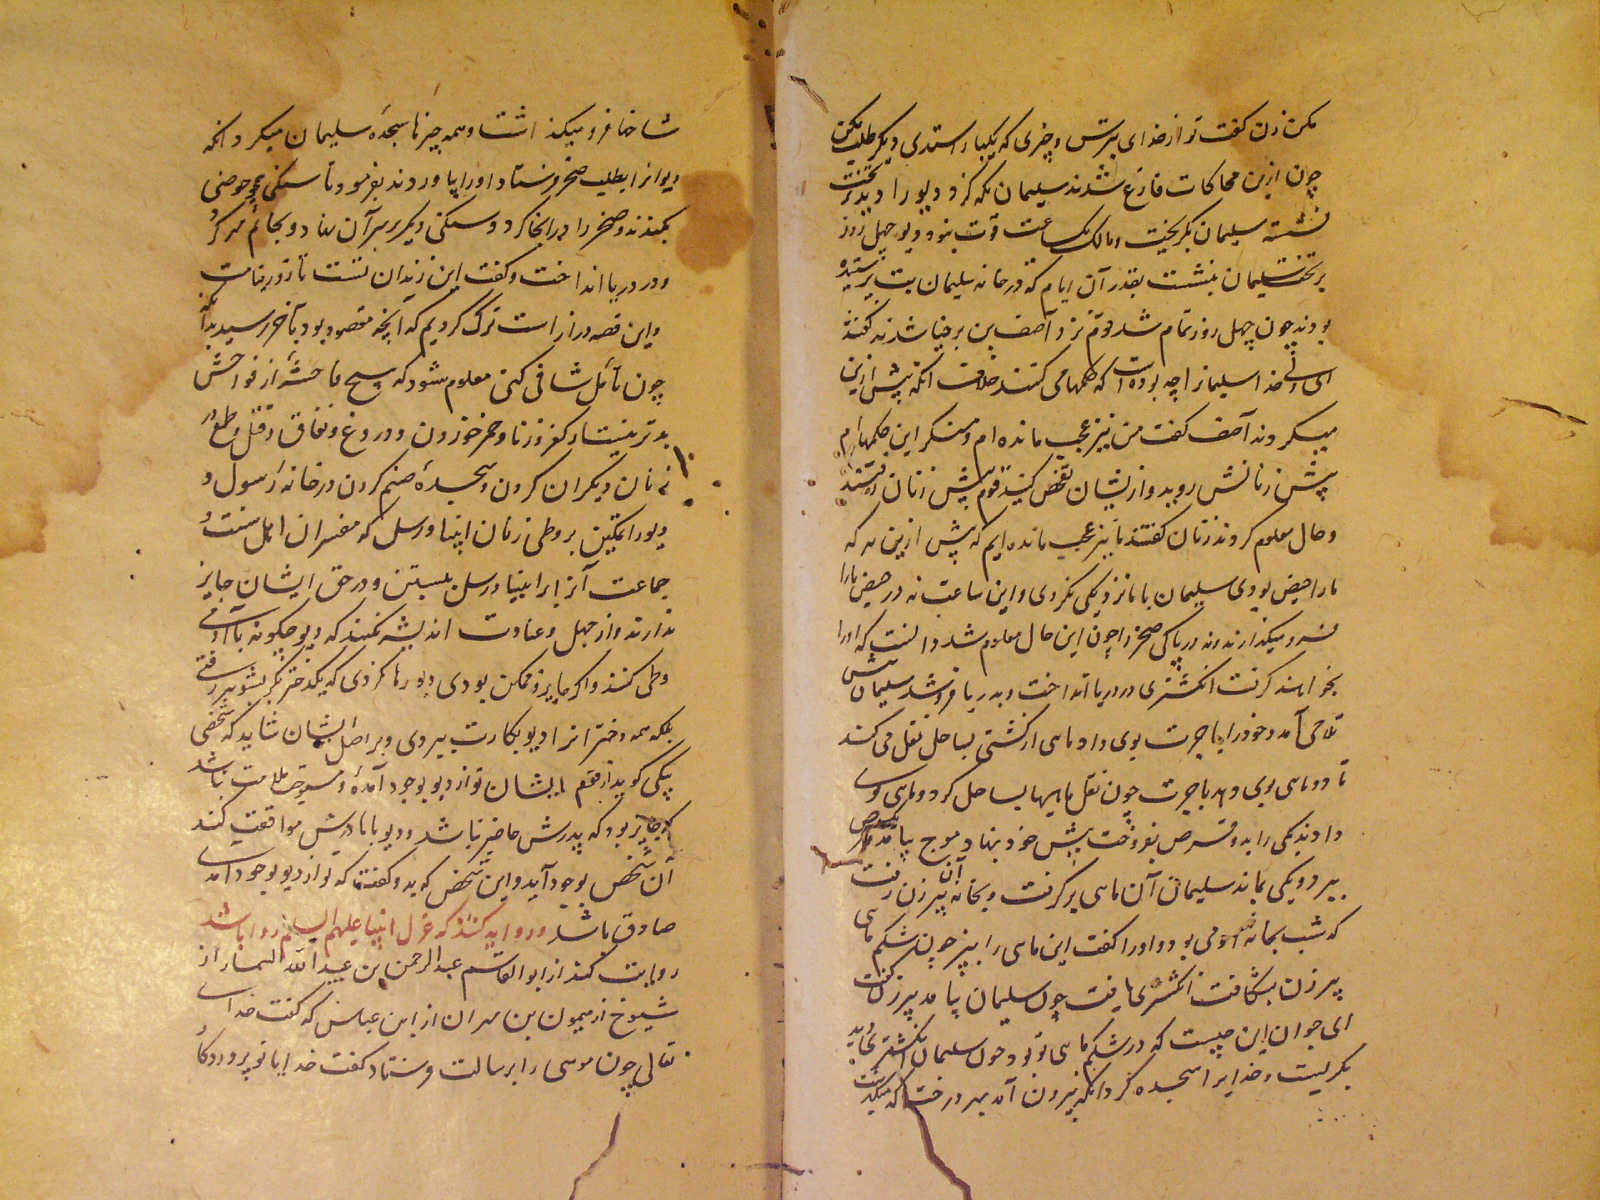 مکن زن گفت تو از خدای بترس و چیزی که یکبار استدی دیگر طلب مکن
چون ازین محاکات فارغ شدند سلیمان نگه کرد دیو را دید بر تخت
نشسته سلیمان بگریخت و مالک یک ساعت قوت نبود و دیو چهل روز
بر تخت سلیمان بنشست بقدر آن ایام که در خانه سلیمان بت پرستیده
بودند چون چهل روز تمام شد قوم نزد آصف بن برخیا شدند گفتند
خدا سلیمانرا چه بوده است که حکمها می کند خلاف آنکه پیش ازین
میکردند آصف گفت من نیز عجب مانده ام و منکر این حکمها ام
پیش زنانش روید و ازیشان تفحص کنید قوم پیش زنان رفتند
و حال معلوم کردند زنان گفتند ما نیز عجب مانده ایم که پیش ازین هر که
ما را حیض بودی سلیمان با ما نزدیکی نکردی و این ساعت نه در حیض ما را
فرو میگذارند و نه در پاکی صخر را چون این حال معلوم شد دانست که او را
بخواهند گرفت انگشتری در دریا انداخت و بدریا فرو شد سلیمان پیش
ملاحی آمد و خود را باجرت بوی داد ماهی از کشتی بساحل نقل می کند
تا دو ماهی بوی دهد باجرت چون نقل ماهیها بساحل کرد دو ماهی بوی
دادند یکی را بدو قرص بفروخت پیش خود بنهاد موج بیامد
ببرد و یکی بماند سلیمان آن ماهی برگرفت و بخانه آن پیر زن رفت
که شب بخانه او می بود و او را گفت این ماهی را بپز چون شکم ماهی
پیر زن بشکافت انگشتری یافت چون سلیمان بیامد پیر زن گفت
ای جوان این چیست که در شکم ماهی تو بود چون سلیمان انگشتری دید
بگریست و خدایرا سجده کرد آنگه بیرون آمد بهر درخت که میگذشت
شاخها فرو میگذاشت و همه چیزها سجدهٔ سلیمان میکرد آنگه
دیوانرا بطلب صخر فرستاد او را بیاوردند بفرمود تا سنگی همچو حوضی
بکندند و صخر را در آنجا کرد و سنگی دیگر بر سر آن نهاد و بخاتم مهر کرد
و در دریا انداخت و گفت این زندان تست تا روز قیامت
و این قصه دراز است ترک کردیم که آنچه مقصود بود بآخر رسید بدانکه
چون تأمل شافی کنی معلوم شود که هیچ فاحشهٔ از فواحش
بدتر نیست از کفر و زنا و خمر خوردن و دروغ و نفاق و قتل و طمع در
زنان دیگران کردن و سجدهٔ صنم کردن در خانه رسول و
دیو را تمکین بر وطی زنان انبیا و رسل که مفسران اهل سنت و
جماعت آنرا بر انبیا و رسل بستن و در حق ایشان جایز
ندارند و از جهل و عداوت اندیشه نکنند که دیو چگونه با آدمی
وطی کند و اگر جایز و ممکن بودی دیو رها نکردی که یکدختر بکر بشوهر رفتی
بلکه همه دخترانرا دیو بکارت ببردی و بر اصل ایشان شاید که شخصی
یکی گوید از قوم ایشان تو از دیو بوجود آمدهٔ و مستوجب ملامت نباشد
که جایز بود که پدرش حاضر نباشد و دیو با مادرش مواقعت کند
آن شخص بوجود آید و این شخص که بدو گفت که تو از دیو بوجود آمدی
صادق باشد و روایه کنند که عزل انبیا علیهم السلم روا باشد
روایت کند از ابو القاسم عبد الرحمن بن عبد الله النمار از
شیوخ از میمون بن مهران از ابن عباس که گفت خدای
تعالی چون موسی را برسالت فرستاد گفت خدایا تو پروردگار